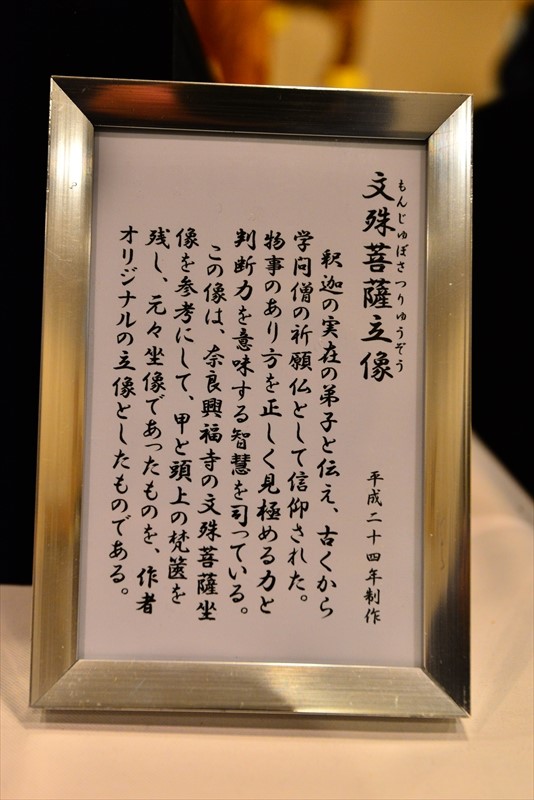 文殊菩薩立像
もんじゅぼさつりゅうぞう
平成二十四年制作
釈迦の実在の弟子と伝え、古くから
学問僧の祈願仏として信仰された。
物事のあり方を正しく見極める力と
判断力を意味する智慧を司っている。
この像は、奈良興福寺の文殊菩薩坐
像を参考にして、甲と頭上の梵篋を
残し、元々坐像であったものを、作者
オリジナルの立像としたものである。